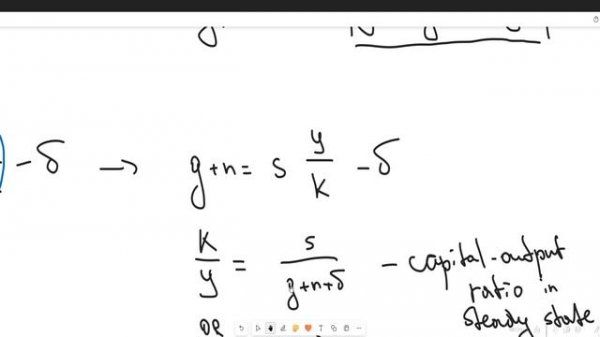 - δ → g+n = s y/k - δ
k/y = s/(g+n+δ) - capital-output
ratio in
steady state
or